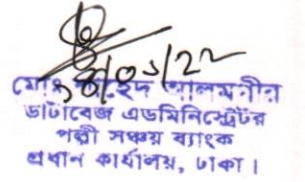 ১৪/০১/২২
মোঃ জাহেদ আলমগীর
ডাটাবেজ এডমিনিস্ট্রেটর
পল্লী সঞ্চয় ব্যাংক
প্রধান কার্যালয়, ঢাকা।